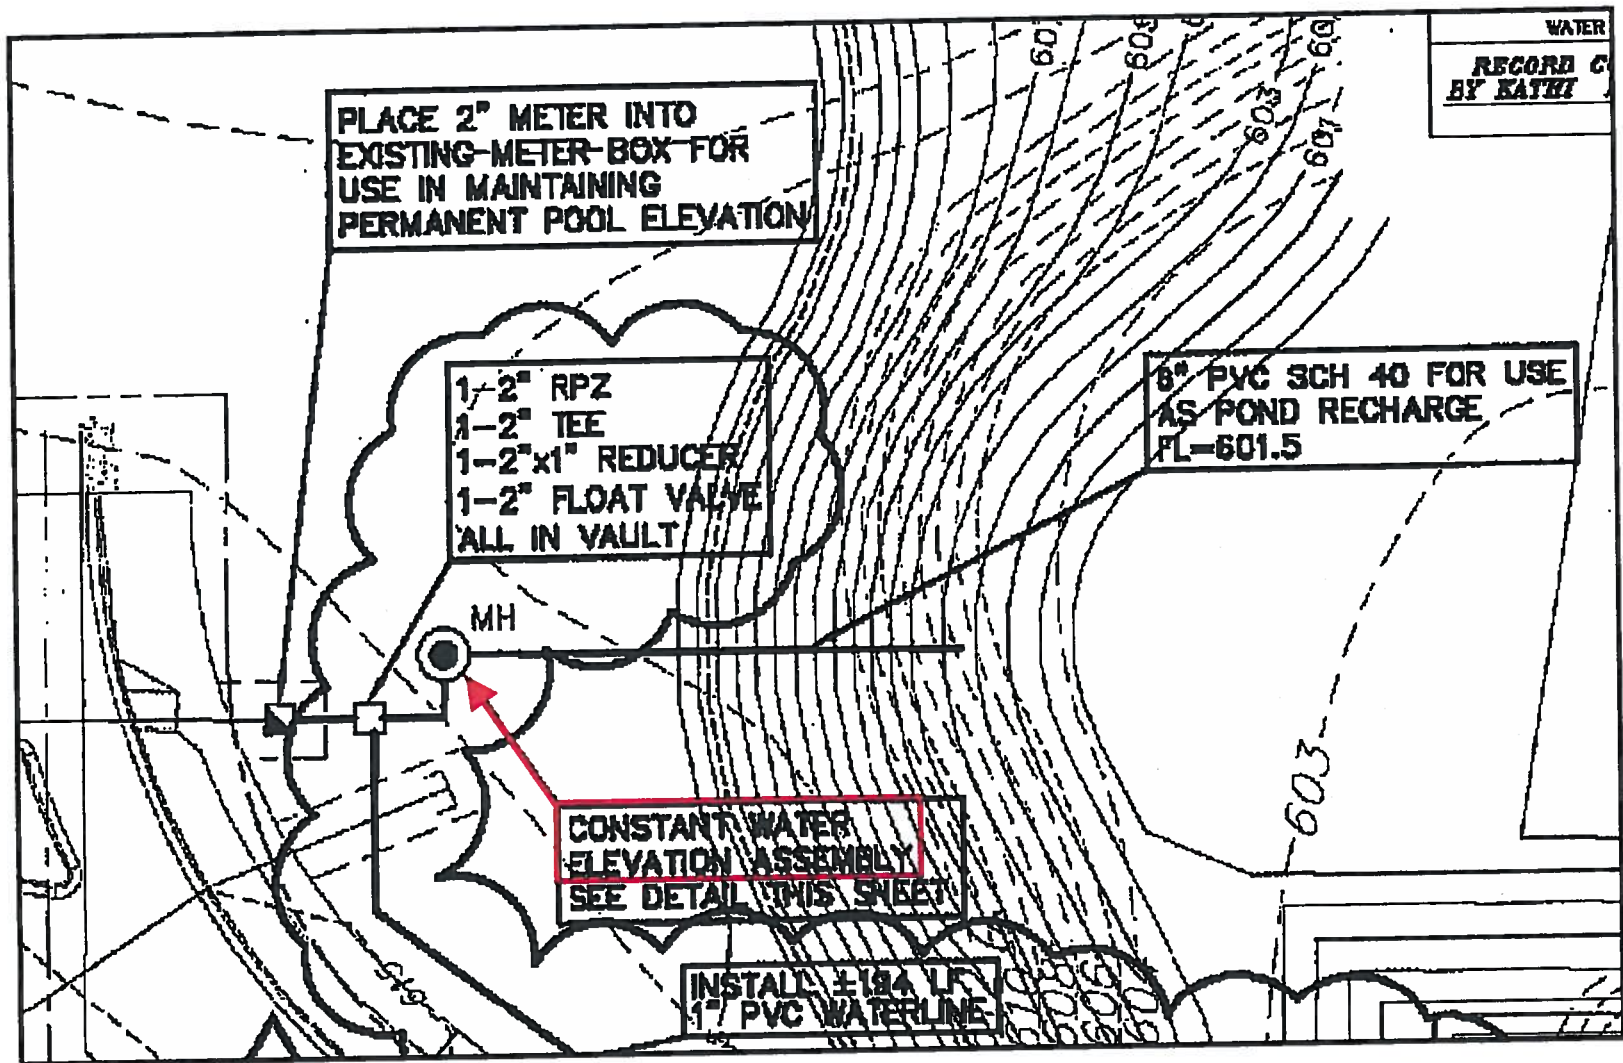 WATER
RECORD
BY KATHI
PLACE 2" METER INTO
EXISTING METER BOX FOR
USE IN MAINTAINING
PERMANENT POOL ELEVATION
603
607
1-2" RPZ
1-2" TEE
1-2"x1" REDUCER
1-2" FLOAT VALVE
ALL IN VAULT
6" PVC SCH 40 FOR USE
AS POND RECHARGE
FL=601.5
MH
603
CONSTANT WATER
ELEVATION ASSEMBLY
SEE DETAIL THIS SHEET
615
INSTALL ±194 LF
1" PVC WATERLINE